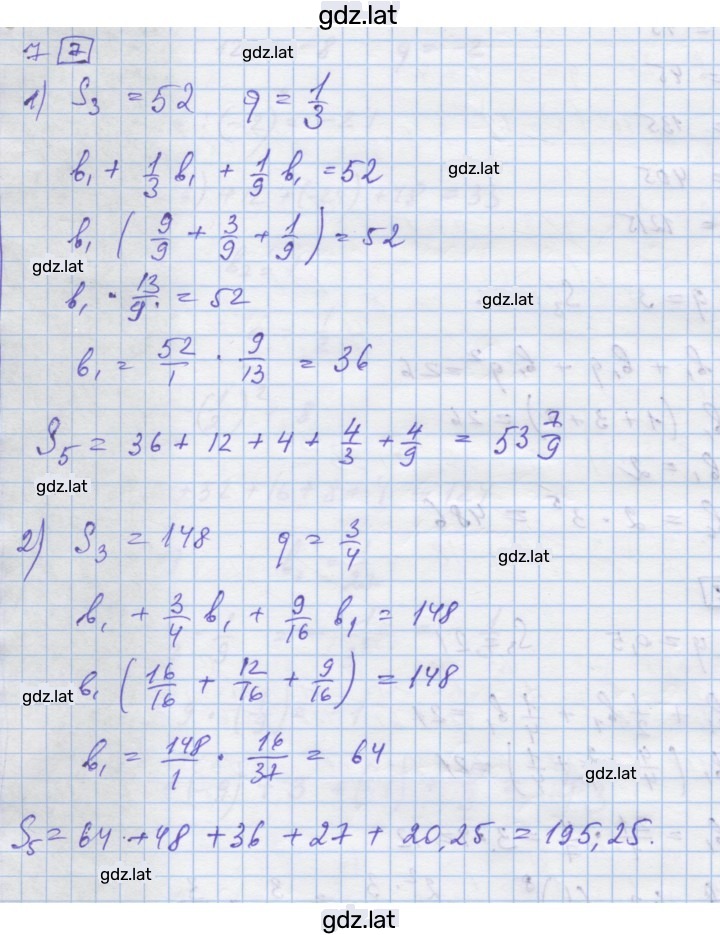 gdz.lat
7 [7] gdz.lat
1) S₃ = 52 q = 1/3
b₁ + 1/3 b₁ + 1/9 b₁ = 52 gdz.lat
b₁ (9/9 + 3/9 + 1/9) = 52
gdz.lat
b₁ · 13/9 = 52 gdz.lat
b₁ = 52/1 · 9/13 = 36
S₅ = 36 + 12 + 4 + 4/3 + 4/9 = 53 7/9
gdz.lat
2) S₃ = 148 q = 3/4 gdz.lat
b₁ + 3/4 b₁ + 9/16 b₁ = 148
gdz.lat b₁ (16/16 + 12/16 + 9/16) = 148
b₁ = 148/1 · 16/37 = 64
gdz.lat
S₅ = 64 + 48 + 36 + 27 + 20,25 = 195,25.
gdz.lat
gdz.lat